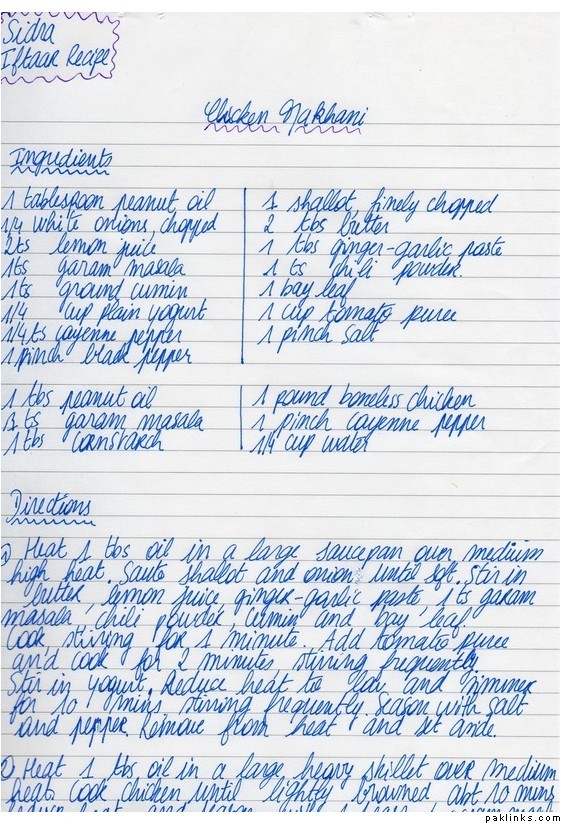 Sidra
Iftaar Recipe
Chicken Makhani
Ingredients
1 tablespoon peanut oil
1/4 white onions, chopped
2ts lemon juice
1ts garam masala
1ts ground cumin
1/4 cup plain yogurt
1/4ts cayenne pepper
1 pinch black pepper
1 shallot, finely chopped
2 tbs butter
1 tbs ginger-garlic paste
1 ts chili powder.
1 bay leaf
1 cup tomato puree
1 pinch salt
1 tbs peanut oil
1 ts garam masala
1 tbs cornstarch
1 pound boneless chicken
1 pinch cayenne pepper
1/4 cup water
Directions
1) Heat 1 tbs oil in a large saucepan over medium
high heat. Saute shallot and onion until soft. Stir in
butter, lemon juice, ginger-garlic paste, 1 ts garam
masala, chili powder, cumin and bay leaf.
Cook, stirring for 1 minute. Add tomato puree
and cook for 2 minutes stirring frequently.
Stir in yogurt. Reduce heat to low, and simmer
for 10 mins, stirring frequently. Season with salt
and pepper. Remove from heat and set aside.
2) Heat 1 tbs oil in a large heavy skillet over medium
heat. Cook chicken until lightly browned, abt 10 mins.
paklinks.com